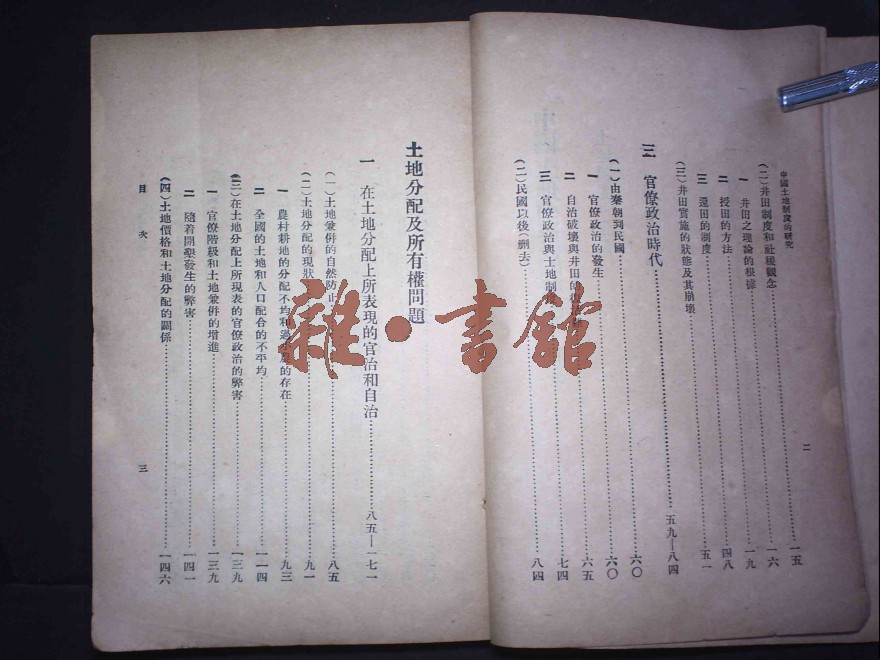 中國土地制度的研究
二
(二)井田制度和社稷觀念……一五
一 井田之理論的根據……一六
二 授田的方法……一九
三 還田的制度……四八
(三)井田實施的狀態及其崩壞……五一
三 官僚政治時代……五九—八四
(一)由秦朝到民國……六〇
一 官僚政治的發生……六〇
二 自治破壞與井田的……六五
三 官僚政治與土地制……七四
(二)民國以後(刪去)……八四
土地分配及所有權問題
一 在土地分配上所表現的官治和自治……八五—一七一
(一)土地彙併的自然防止……八五
(二)土地分配的現狀……九一
一 農村耕地的分配不均和過小農的存在……九三
二 全國的土地和人口配合的不平均……一一四
(三)在土地分配上所現表的官僚政治的弊害……一三九
一 官僚階級和土地彙併的增進……一三九
二 隨着開墾發生的弊害……一四一
(四)土地價格和土地分配的關係……一四六
目次
三
雜·書館